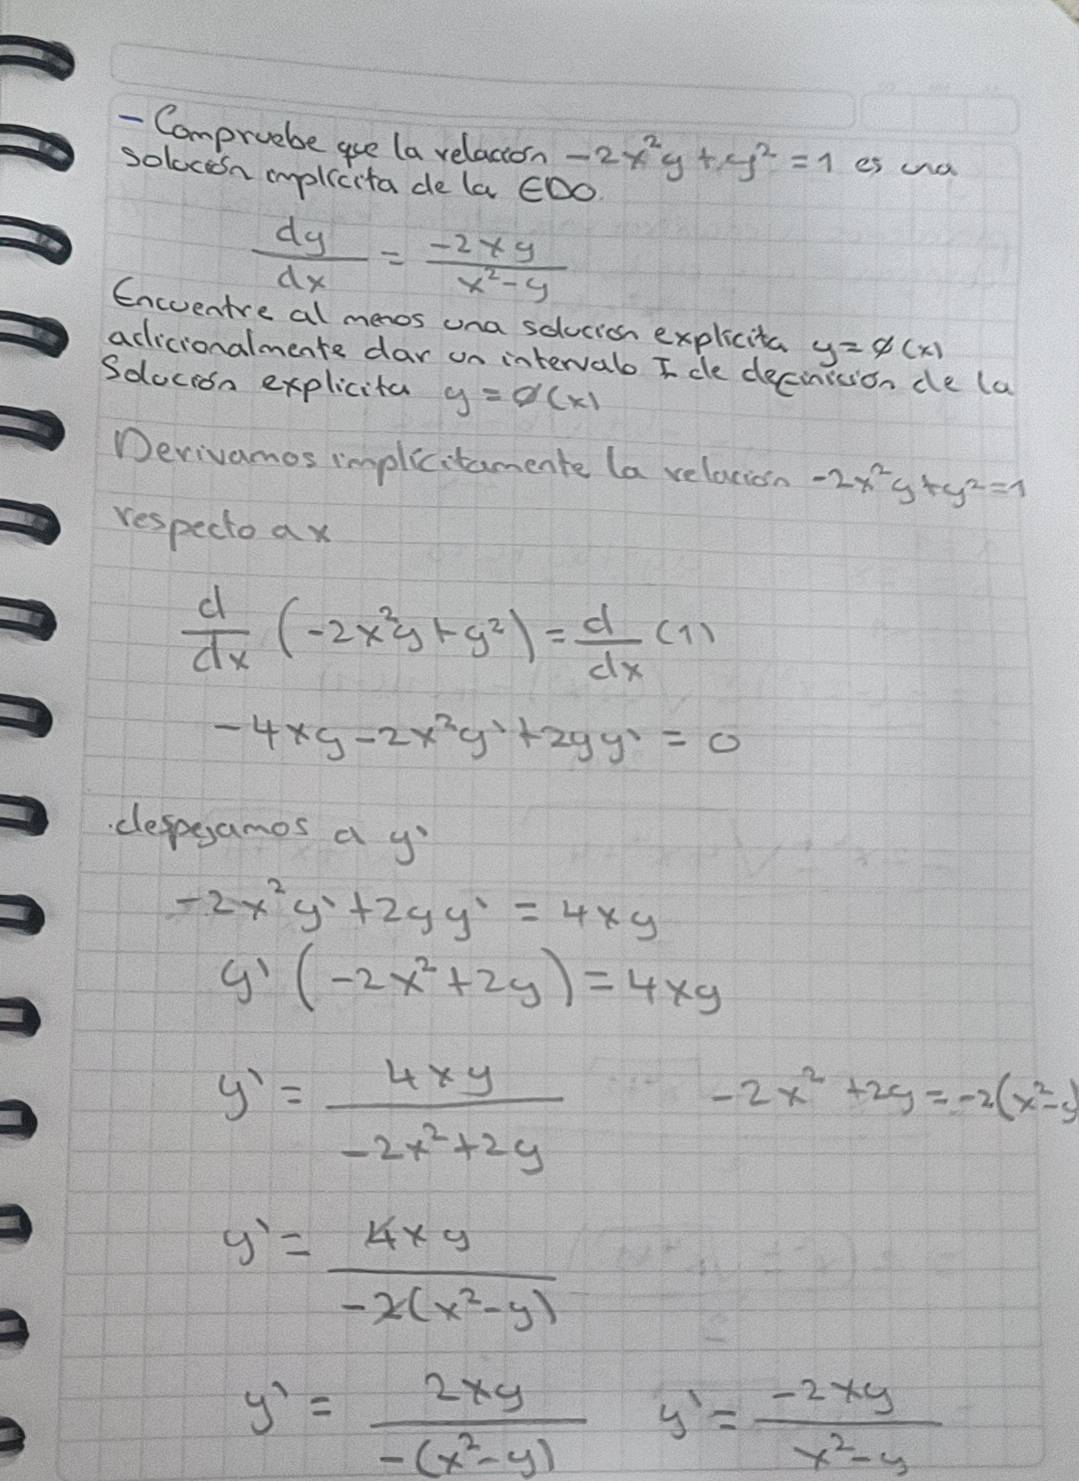 - Compruebe que la relación -2x²y + y² = 1 es una
solución implícita de la EDO.
dy/dx = -2xy/(x²-y)
Encuentre al menos una solución explícita y=ϕ(x)
adicionalmente dar un intervalo I de definición de la
Solución explicita y = ϕ(x)
Derivamos implícitamente la relación -2x²y+y²=1
respecto a x
d/dx (-2x²y+y²) = d/dx (1)
-4xy-2x²y'+2yy' = 0
despejamos a y'
-2x²y'+2yy' = 4xy
y'(-2x²+2y) = 4xy
y' = 4xy/(-2x²+2y)    -2x²+2y = -2(x²-y)
y' = 4xy/(-2(x²-y))
y' = 2xy/(-(x²-y))    y' = -2xy/(x²-y)